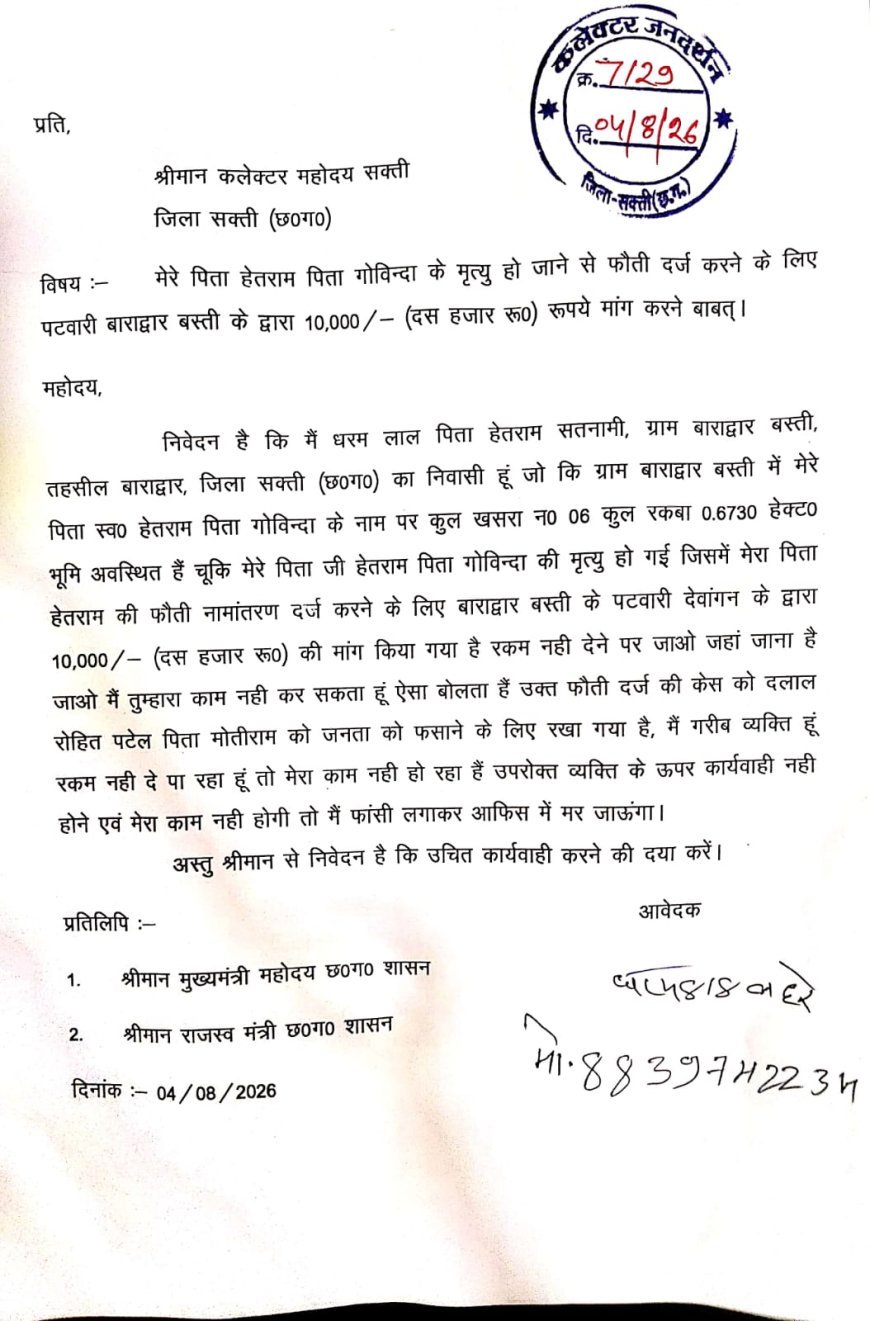 कलेक्टर जनदर्शन
क्र. 7/29
दि. 04/8/26
जिला-सक्ती(छ.ग.)
प्रति,
श्रीमान कलेक्टर महोदय सक्ती
जिला सक्ती (छ0ग0)
विषय :– मेरे पिता हेतराम पिता गोविन्दा के मृत्यु हो जाने से फौती दर्ज करने के लिए
पटवारी बाराद्वार बस्ती के द्वारा 10,000/– (दस हजार रू0) रूपये मांग करने बाबत्।
महोदय,
निवेदन है कि मैं धरम लाल पिता हेतराम सतनामी, ग्राम बाराद्वार बस्ती,
तहसील बाराद्वार, जिला सक्ती (छ0ग0) का निवासी हूं जो कि ग्राम बाराद्वार बस्ती में मेरे
पिता स्व0 हेतराम पिता गोविन्दा के नाम पर कुल खसरा न0 06 कुल रकबा 0.6730 हेक्ट0
भूमि अवस्थित हैं चूकि मेरे पिता जी हेतराम पिता गोविन्दा की मृत्यु हो गई जिसमें मेरा पिता
हेतराम की फौती नामांतरण दर्ज करने के लिए बाराद्वार बस्ती के पटवारी देवांगन के द्वारा
10,000/– (दस हजार रू0) की मांग किया गया है रकम नही देने पर जाओ जहां जाना है
जाओ मैं तुम्हारा काम नही कर सकता हूं ऐसा बोलता हैं उक्त फौती दर्ज की केस को दलाल
रोहित पटेल पिता मोतीराम को जनता को फसाने के लिए रखा गया है, मैं गरीब व्यक्ति हूं
रकम नही दे पा रहा हूं तो मेरा काम नही हो रहा हैं उपरोक्त व्यक्ति के ऊपर कार्यवाही नही
होने एवं मेरा काम नही होगी तो मैं फांसी लगाकर आफिस में मर जाऊंगा।
अस्तु श्रीमान से निवेदन है कि उचित कार्यवाही करने की दया करें।
प्रतिलिपि :–
आवेदक
1. श्रीमान मुख्यमंत्री महोदय छ0ग0 शासन
2. श्रीमान राजस्व मंत्री छ0ग0 शासन
मो.
दिनांक :– 04/08/2026